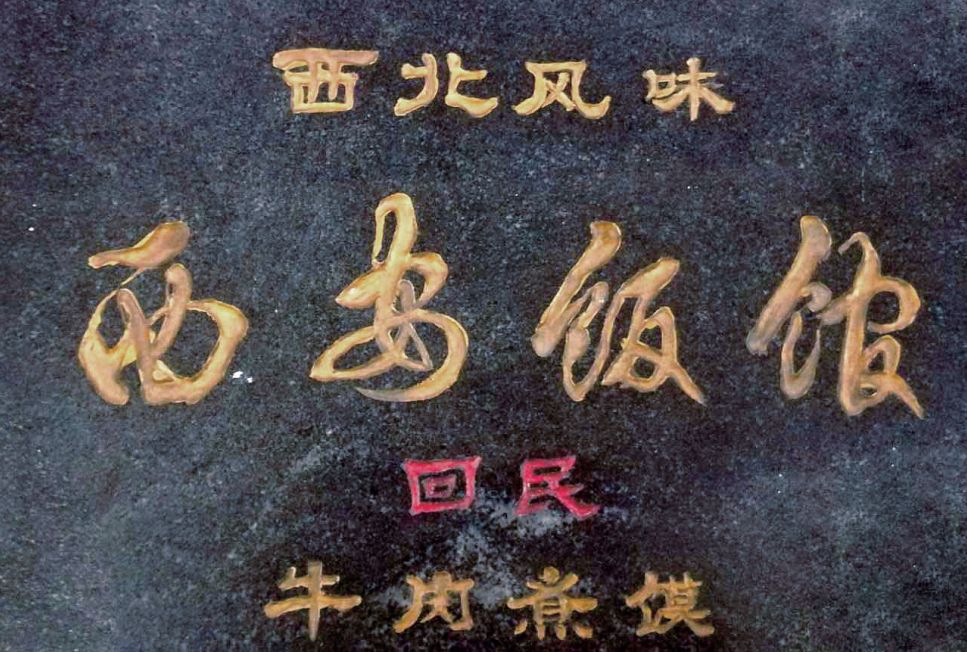 西北风味
西安饭馆
回民
牛肉煮馍